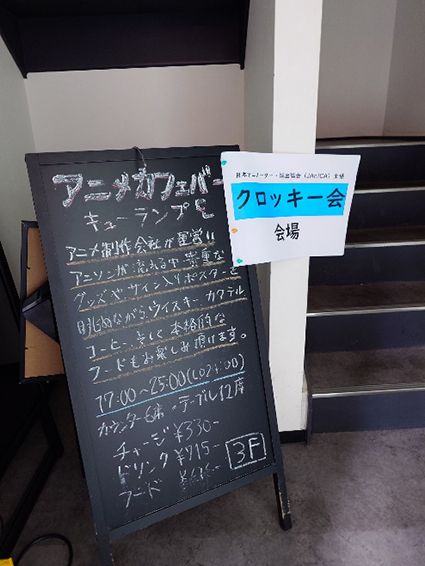 アニメカフェバー
キューランプ
アニメ制作会社が運営!!
アニソンが流れる中貴重な
グッズやサイン入りポスターを
眺めながら、ウイスキー カクテル
コーヒー、そして本格的な
フードもお楽しみ頂けます。
17:00〜25:00
カウンター6席・テーブル12席
チャージ ¥330-
ドリンク ¥715-
フード
3F
日本アニメーター・演出協会(JAniCA)主催
クロッキー会
会場